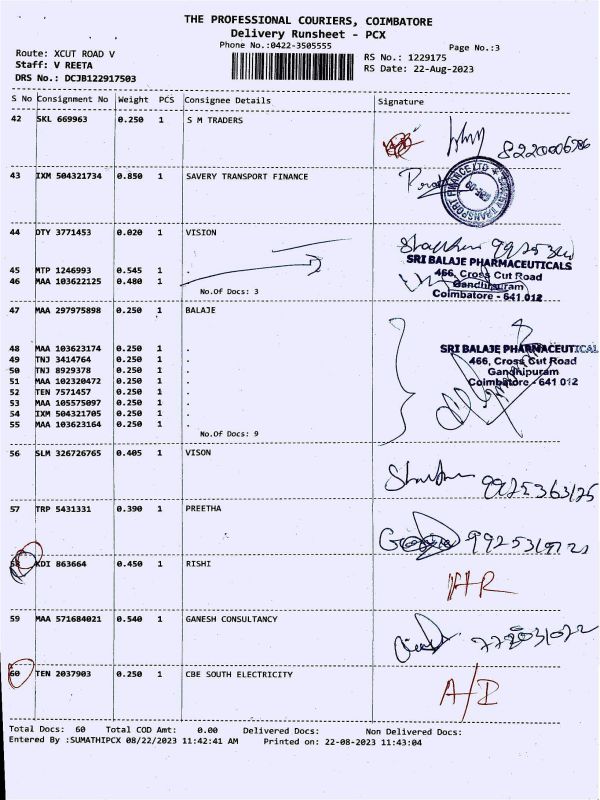 THE PROFESSIONAL COURIERS, COIMBATORE
Delivery Runsheet - PCX
Phone No.:0422-3505555
Page No.:3
Route: XCUT ROAD V
Staff: V REETA
DRS No.: DCJB122917503
RS No.: 1229175
RS Date: 22-Aug-2023
S No Consignment No Weight PCS Consignee Details Signature
42 SKL 669963 0.250 1 S M TRADERS
43 IXM 504321734 0.850 1 SAVERY TRANSPORT FINANCE
44 DTY 3771453 0.020 1 VISION
45 MTP 1246993 0.545 1 .
46 MAA 103622125 0.480 1 .
No.Of Docs: 3
SRI BALAJE PHARMACEUTICALS
466, Cross Cut Road
Gandhipuram
Coimbatore - 641 012
47 MAA 297975898 0.250 1 BALAJE
48 MAA 103623174 0.250 1 .
49 TNJ 3414764 0.250 1 .
50 TNJ 8929378 0.250 1 .
51 MAA 102320472 0.250 1 .
52 TEN 7571457 0.250 1 .
53 MAA 105575097 0.250 1 .
54 IXM 504321705 0.250 1 .
55 MAA 103623164 0.250 1 .
No.Of Docs: 9
SRI BALAJE PHARMACEUTICAL
466, Cross Cut Road
Gandhipuram
Coimbatore - 641 012
56 SLM 326726765 0.405 1 VISON
57 TRP 5431331 0.390 1 PREETHA
58 KDI 863664 0.450 1 RISHI
59 MAA 571684021 0.540 1 GANESH CONSULTANCY
60 TEN 2037903 0.250 1 CBE SOUTH ELECTRICITY
Total Docs: 60 Total COD Amt: 0.00 Delivered Docs: Non Delivered Docs:
Entered By :SUMATHIPCX 08/22/2023 11:42:41 AM Printed on: 22-08-2023 11:43:04